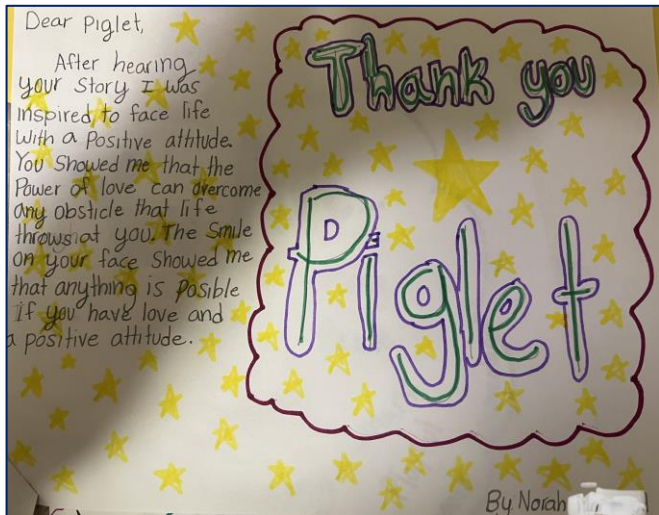 Dear Piglet,
After hearing
your Story I was
inspired to face life
with a Positive attitude.
You Showed me that the
Power of love can overcome
any obsticle that life
throws at you. The Smile
on your face Showed me
that anything is Posible
if you have love and
a positive attitude.
Thank you
Piglet
By: Norah